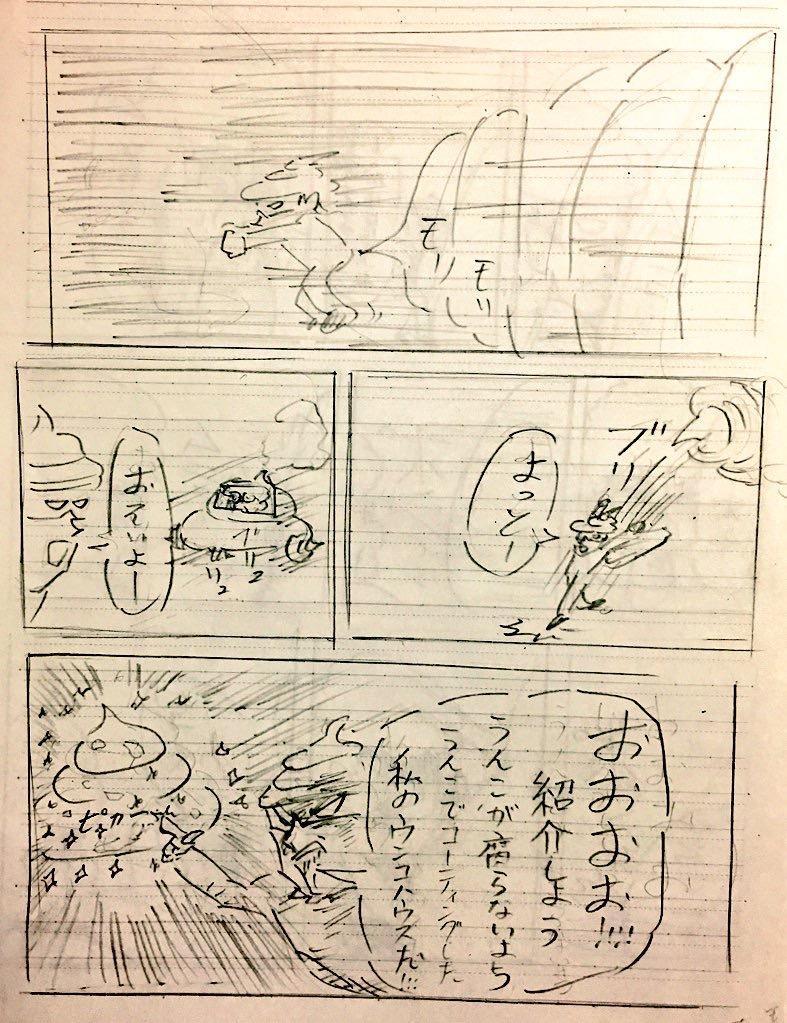 モリ
モリ
ブリ
よっとー
おそいよー
ブリュ
おおおお!!!
紹介しよう
うんこが腐らないよう
うんこでコーティングした
私のウンコハウスだ!!!